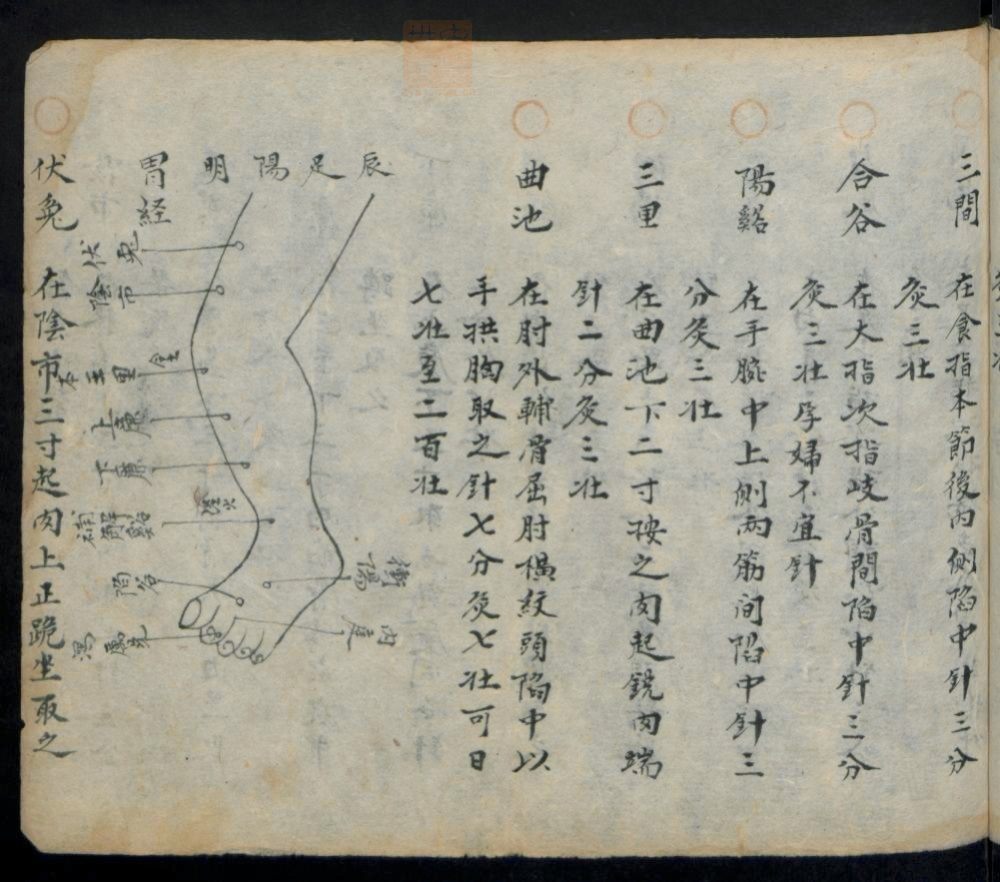 三間 在食指本節後内側陷中針三分
灸三壮
合谷 在大指次指歧骨間陷中針三分
灸三壮孕婦不宜針
陽谿 在手腕中上側两筋间陷中針三
分灸三壮
三里 在曲池下二寸按之肉起鋭肉端
針二分灸三壮
曲池 在肘外輔骨屈肘橫紋頭陷中以
手拱胸取之針七分灸七壮可日
七壮至二百壮
辰足陽明
胃経
伏兎
陰市
三里
上廉
下廉
解谿
衝陽
陷谷
内庭
厲兌
伏兔 在陰市三寸起肉上正跪坐取之